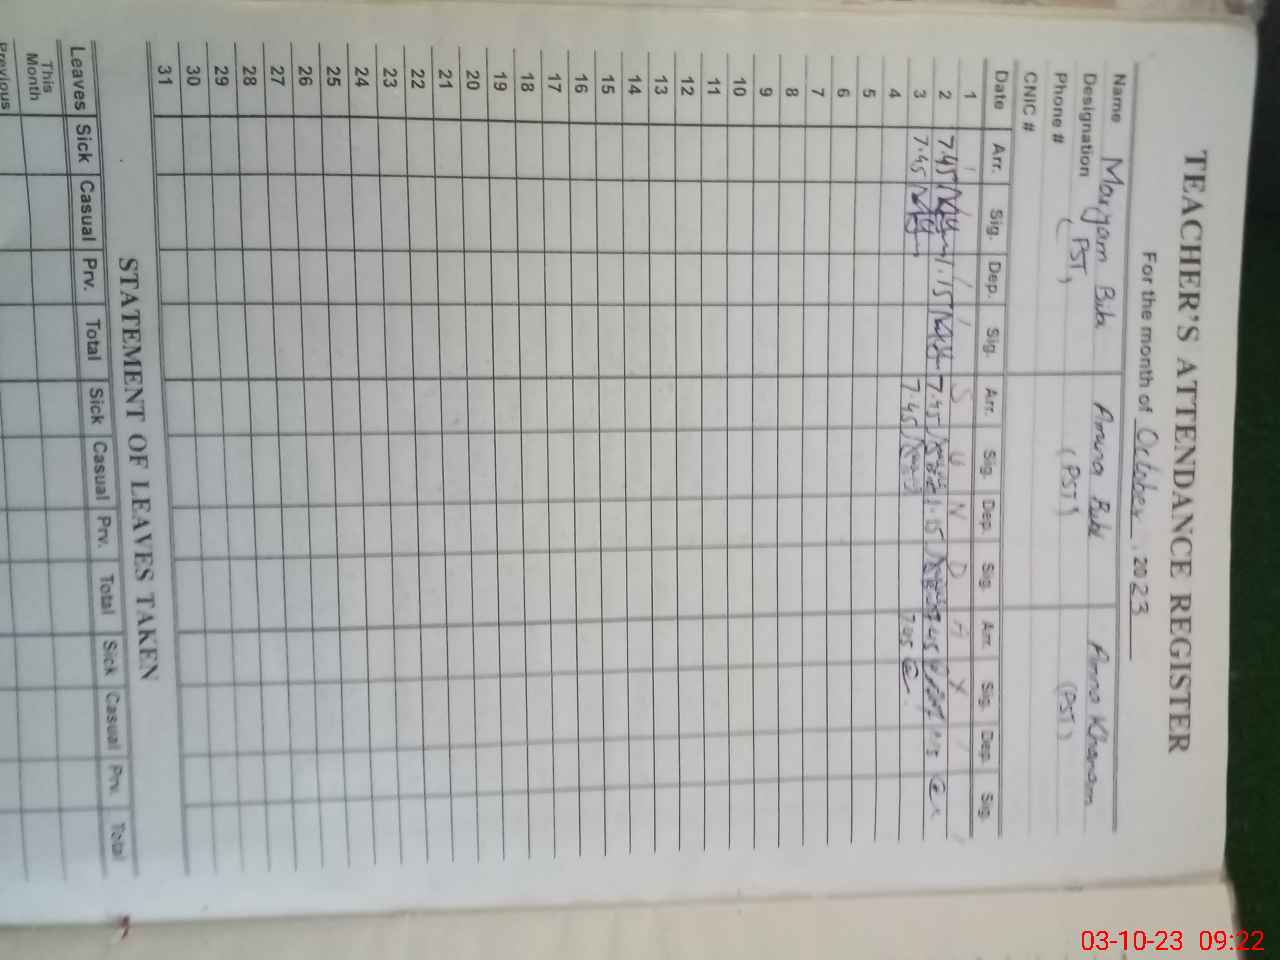 TEACHER'S ATTENDANCE REGISTER
For the month of October, 2023
Name Maryam Bibi Amna Bibi Amna Khanam
Designation (PST) (PST) (PST)
Phone #
CNIC #
Date Arr. Sig. Dep. Sig. Arr. Sig. Dep. Sig. Arr. Sig. Dep. Sig.
1 S U N D A Y
2 7.45 1.15 7.45 1.15 7.45 1.15
3 7.45 7.45 7.45
4
5
6
7
8
9
10
11
12
13
14
15
16
17
18
19
20
21
22
23
24
25
26
27
28
29
30
31
STATEMENT OF LEAVES TAKEN
Leaves Sick Casual Prv. Total Sick Casual Prv. Total Sick Casual Prv. Total
This Month
Previous
03-10-23 09:22